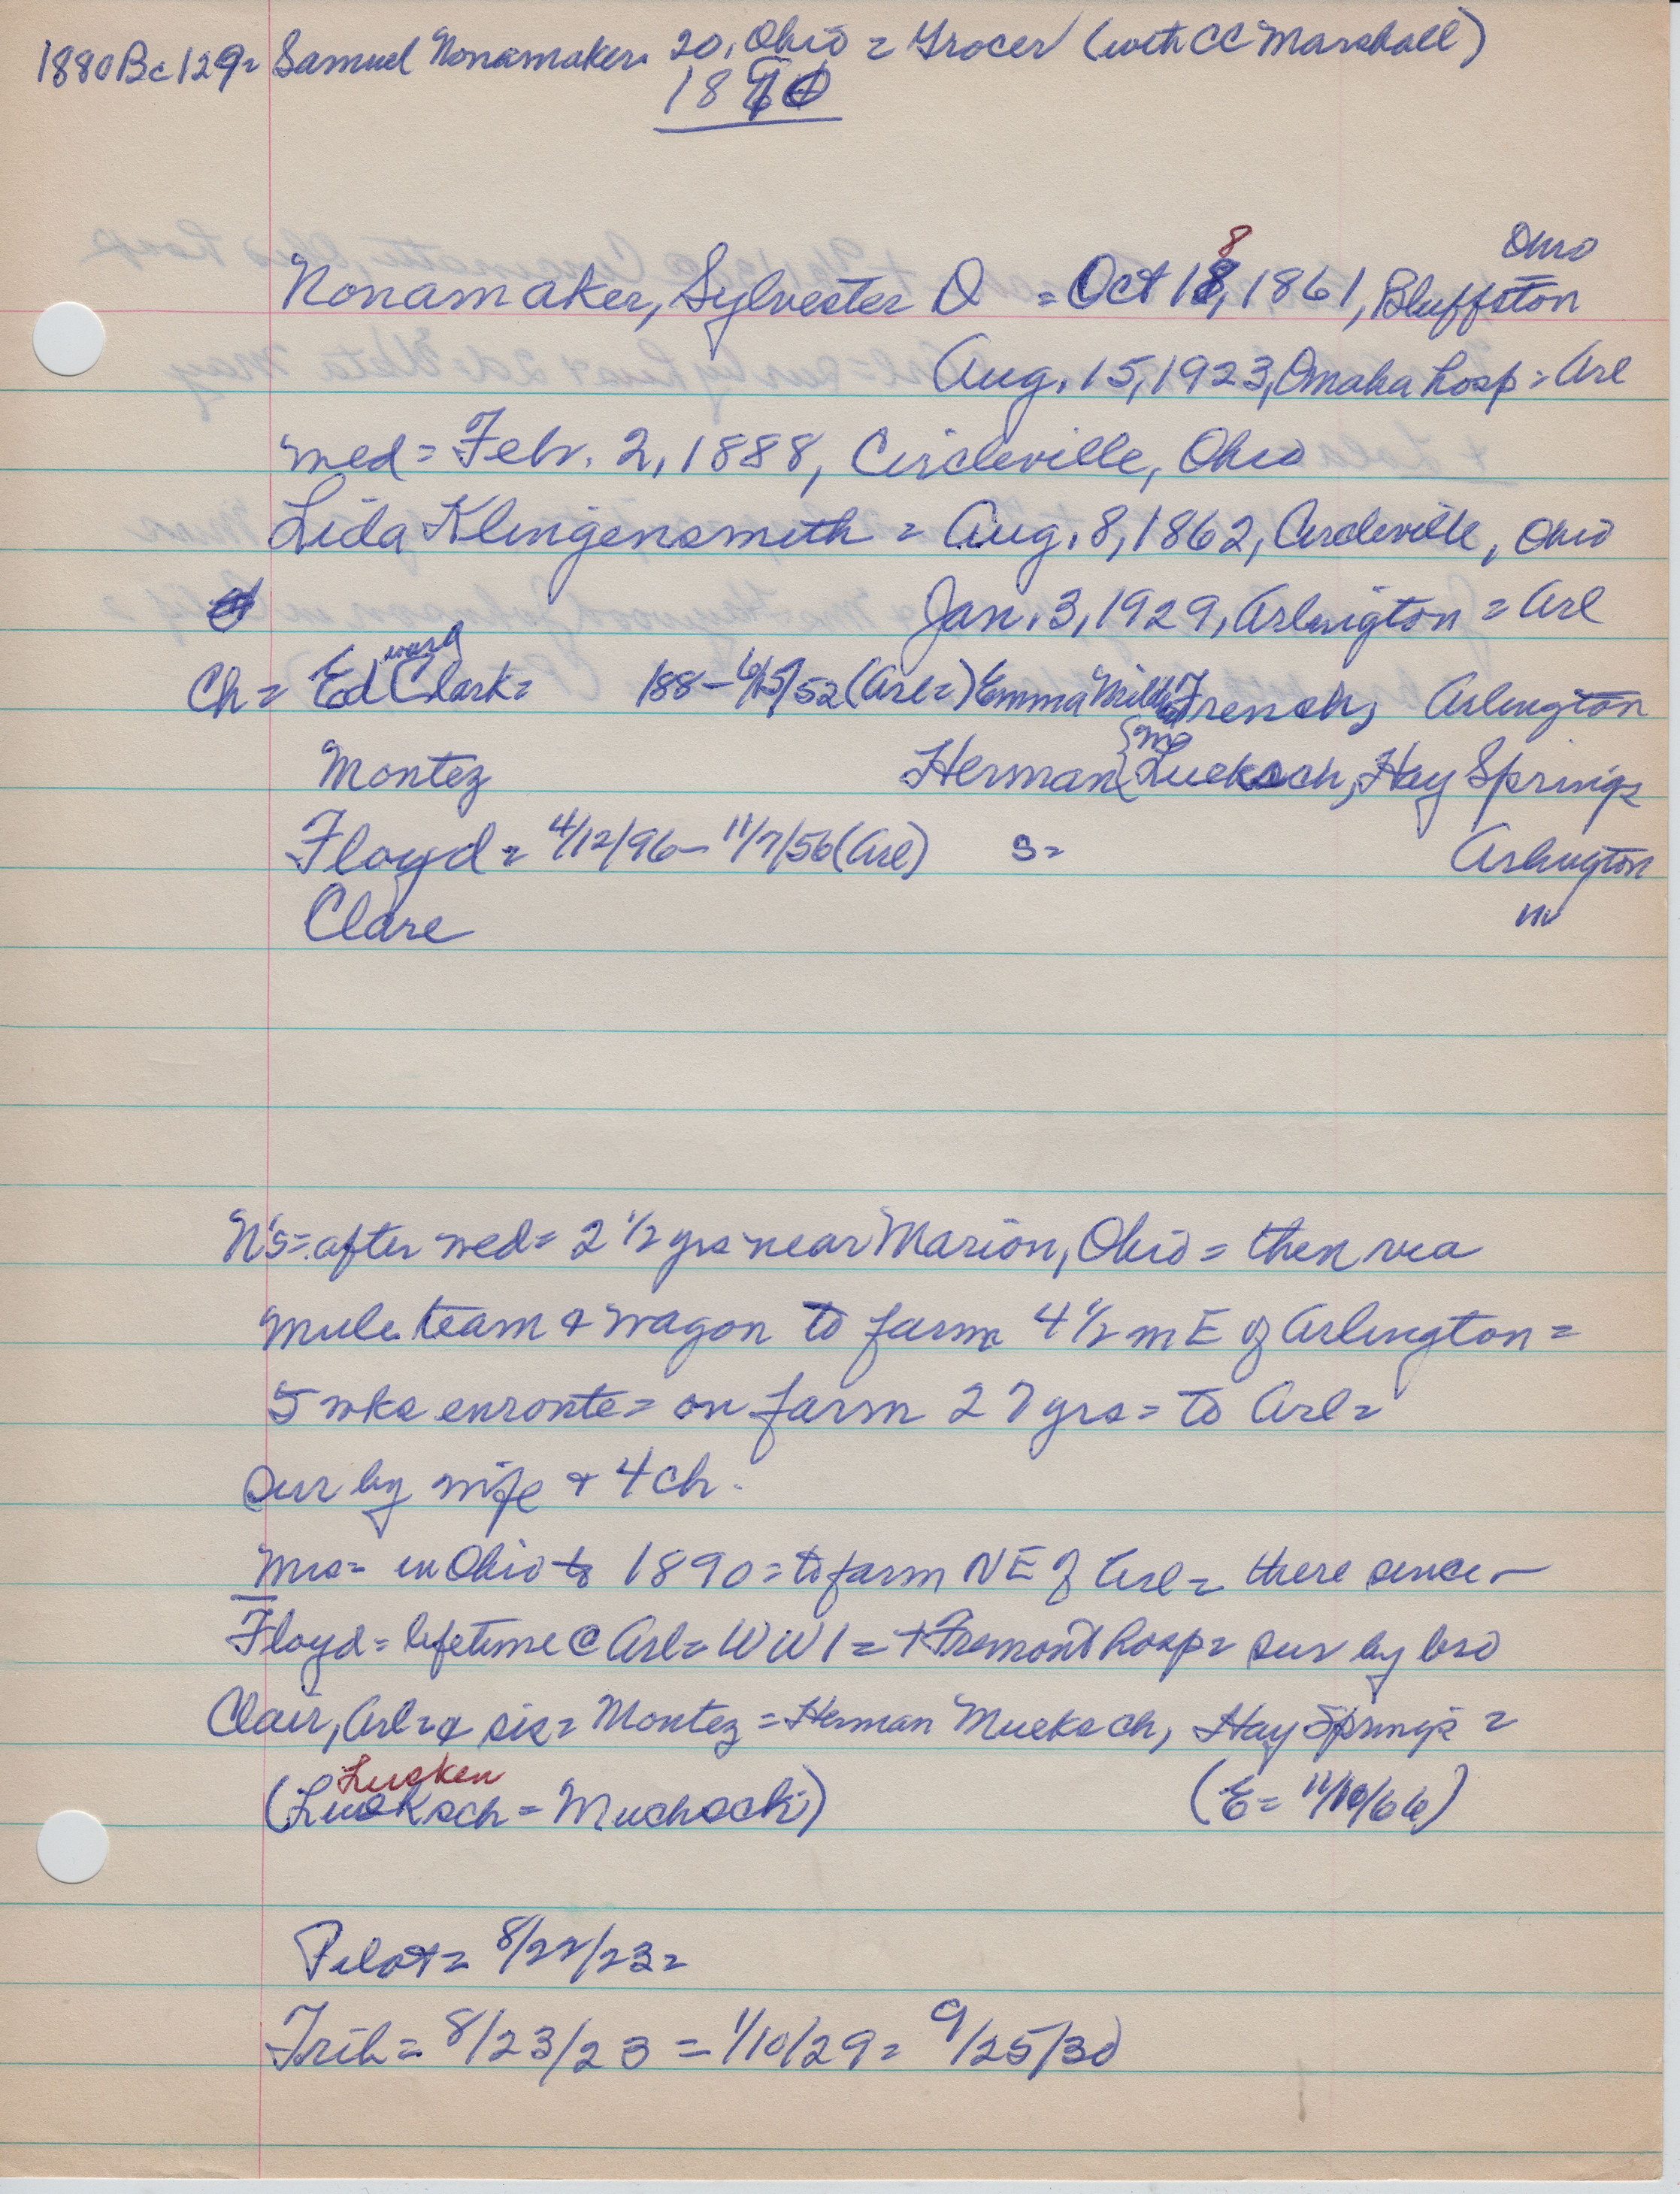 1880 Bc 129= Samuel Nonamaker 20, Ohio = Grocer (with CC Marshall)
18
8
Ohio
Nonamaker, Sylvester D = Oct 18, 1861, Bluffston
Aug. 15, 1923, Omaha hosp = Arl
wed = Febr. 2, 1888, Circleville, Ohio
Lida Klingensmith = Aug. 8, 1862, Circleville, Ohio
Jan. 3, 1929, Arlington = Arl
ward
Ch = Ed Clark = 188 – /52 (Arl =) Emma French, Arlington
Montez Herman Lueksch, Hay Springs
Floyd = 4/12/96 – 11/7/56 (Arl) S = Arlington
Clare
N's = after wed = 2 1/2 yrs near Marion, Ohio = then via
mule team & wagon to farm 4 1/2 m E of Arlington =
5 wks enroute = on farm 27 yrs = to Arl =
sur by wife & 4 ch.
Mrs = in Ohio to 1890 = to farm NE of Arl = there since –
Floyd = lifetime @ Arl = WW1 = + Fremont hosp = sur by bro
Clair, Arl = & sis = Montez = Herman Mueksch, Hay Springs =
Lucken
(Lueksch = Muchsch) (E = 11/10/66)
Pilot = 8/22/23 =
Trib = 8/23/23 = 1/10/29 = 9/25/30